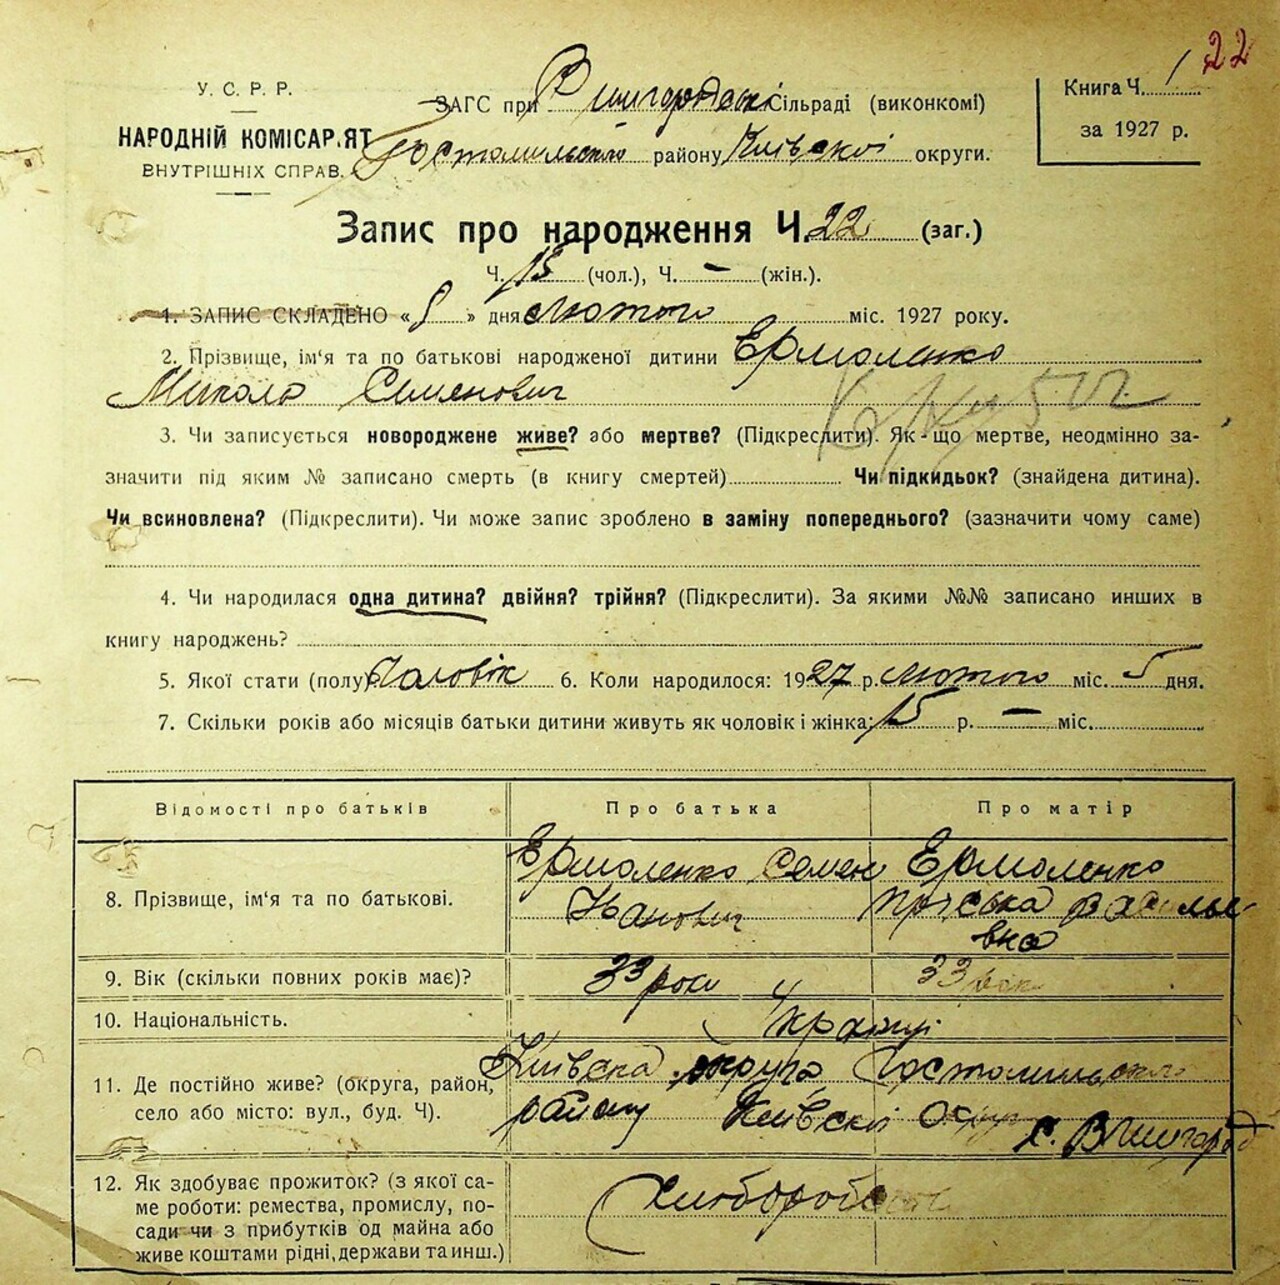 22
У. С. Р. Р.
НАРОДНІЙ КОМІСАР.ЯТ
ВНУТРІШНІХ СПРАВ.
ЗАГС при Вишгородські Сільраді (виконкомі)
Гостомильского району Київскої округи.
Книга Ч. 1
за 1927 р.
Запис про народження Ч. 22 (заг.)
Ч. 15 (чол.), Ч. – (жін.).
1. ЗАПИС СКЛАДЕНО « 8 » дня лютого міс. 1927 року.
2. Прізвище, ім'я та по батькові народженої дитини Ермоленко
Микола Семенович
3. Чи записується новороджене живе? або мертве? (Підкреслити). Як-що мертве, неодмінно за-
значити під яким № записано смерть (в книгу смертей) Чи підкидьок? (знайдена дитина).
Чи всиновлена? (Підкреслити). Чи може запис зроблено в заміну попереднього? (зазначити чому саме)
4. Чи народилася одна дитина? двійня? трійня? (Підкреслити). За якими №№ записано инших в
книгу народжень?
5. Якої стати (полу) Чоловік 6. Коли народилося: 1927 р. лютого міс. 5 дня.
7. Скільки років або місяців батьки дитини живуть як чоловік і жінка: 15 р. – міс.
Відомості про батьків Про батька Про матір
8. Прізвище, ім'я та по батькові.
Ермоленко Семен
Іванович
Ермоленко
Василье-
вна
9. Вік (скільки повних років має)? 33 роки 33 роки
10. Національність. Українці
11. Де постійно живе? (округа, район,
село або місто: вул., буд. Ч).
Київска округа Гостомильского
району Київскої округи
с. Вишгород
12. Як здобуває прожиток? (з якої са-
ме роботи: ремества, промислу, по-
сади чи з прибутків од майна або
живе коштами рідні, держави та инш.)